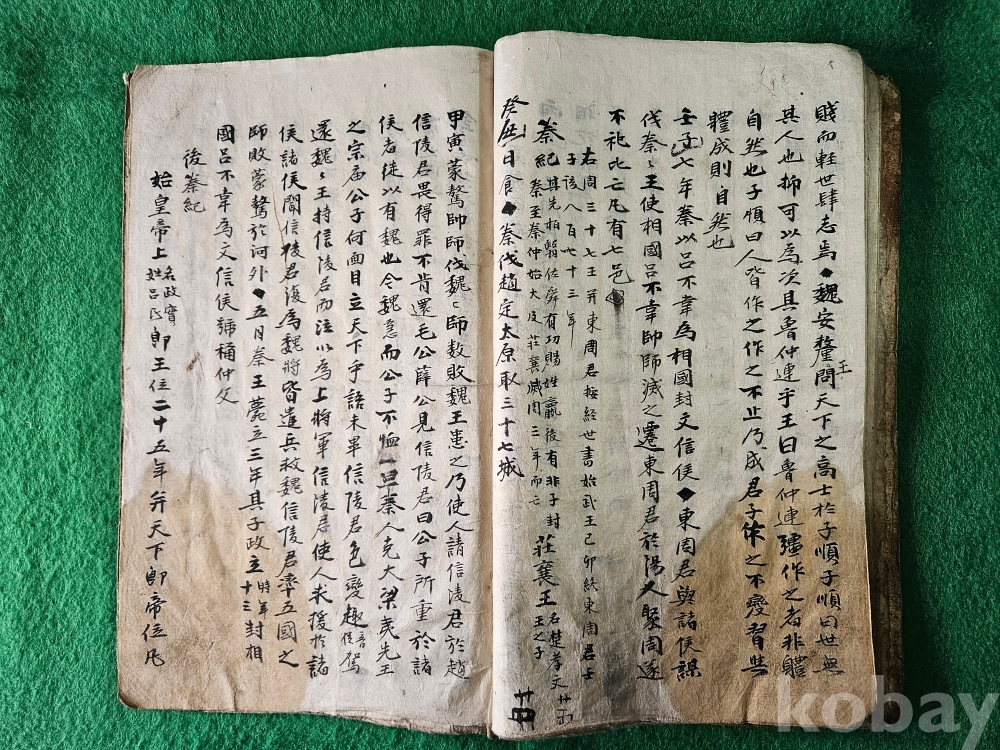 賤而軽世肆志焉◆魏安釐王問天下之高士於子順子順曰世無
其人也抑可以為次其魯仲連乎王曰魯仲連彊作之者非體
自然也子順曰人皆作之作之不止乃成君子作之不變習與
體成則自然也
壬子七年秦以呂不韋為相國封文信侯◆東周君與諸侯謀
伐秦〻王使相國呂不韋帥師滅之遷東周君於陽人聚周遂
不祀比亡凡有七邑
右周三十七王并東周君按経世書始武王己卯終東周君壬
子該八百七十三年
秦紀 其先柏翳佐舜有功賜姓嬴後有非子封
秦至秦仲始大及莊襄滅周三年而亡 莊襄王 名楚孝文
王之子
癸丑日食◆秦伐趙定太原取三十七城
甲寅蒙驁帥師伐魏〻師数敗魏王患之乃使人請信陵君於趙
信陵君畏得罪不肯還毛公薛公見信陵君曰公子所重於諸
侯者徒以有魏也今魏急而公子不恤一旦秦人克大梁夷先王
之宗庙公子何面目立天下乎語未畢信陵君色變趣駕
還魏〻王持信陵君而泣以為上将軍信陵君使人求援於諸
侯諸侯聞信陵君復為魏将皆遣兵救魏信陵君率五國之
師敗蒙驁於河外◆五月秦王薨立三年其子政立 時年
十三 封相
國呂不韋為文信侯號稱仲父
後秦紀
始皇帝上 名政實
姓呂氏 即王位二十五年并天下即帝位凡
kobay